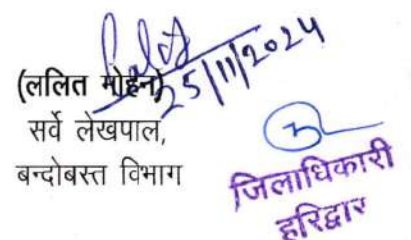 25/11/2024
(ललित मोहन)
सर्वे लेखपाल,
बन्दोबस्त विभाग
जिलाधिकारी
हरिद्वार